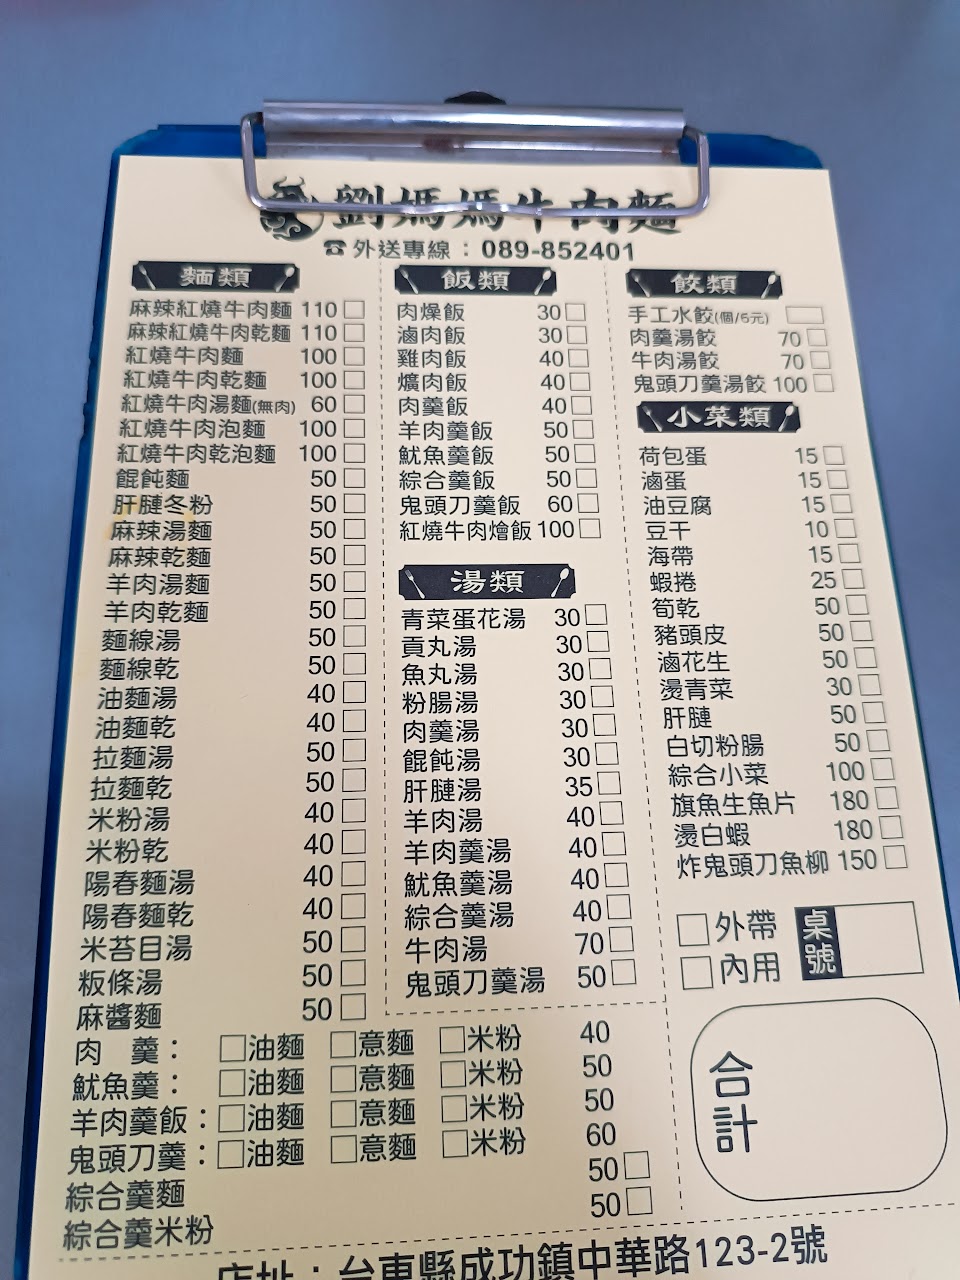 劉媽媽牛肉麵
☎外送專線：089-852401
麵類
麻辣紅燒牛肉麵 110 □
麻辣紅燒牛肉乾麵 110 □
紅燒牛肉麵 100 □
紅燒牛肉乾麵 100 □
紅燒牛肉湯麵(無肉) 60 □
紅燒牛肉泡麵 100 □
紅燒牛肉乾泡麵 100 □
餛飩麵 50 □
肝膁冬粉 50 □
麻辣湯麵 50 □
麻辣乾麵 50 □
羊肉湯麵 50 □
羊肉乾麵 50 □
麵線湯 50 □
麵線乾 50 □
油麵湯 40 □
油麵乾 40 □
拉麵湯 50 □
拉麵乾 50 □
米粉湯 40 □
米粉乾 40 □
陽春麵湯 40 □
陽春麵乾 40 □
米苔目湯 50 □
粄條湯 50 □
麻醬麵 50 □
肉 羹： □油麵 □意麵 □米粉 40
魷魚羹： □油麵 □意麵 □米粉 50
羊肉羹飯：□油麵 □意麵 □米粉 50
鬼頭刀羹：□油麵 □意麵 □米粉 60
綜合羹麵 50 □
綜合羹米粉 50 □
飯類
肉燥飯 30 □
滷肉飯 30 □
雞肉飯 40 □
爌肉飯 40 □
肉羹飯 40 □
羊肉羹飯 50 □
魷魚羹飯 50 □
綜合羹飯 50 □
鬼頭刀羹飯 60 □
紅燒牛肉燴飯 100 □
湯類
青菜蛋花湯 30 □
貢丸湯 30 □
魚丸湯 30 □
粉腸湯 30 □
肉羹湯 30 □
餛飩湯 30 □
肝膁湯 35 □
羊肉湯 40 □
羊肉羹湯 40 □
魷魚羹湯 40 □
綜合羹湯 40 □
牛肉湯 70 □
鬼頭刀羹湯 50 □
餃類
手工水餃(個/5元) □
肉羹湯餃 70 □
牛肉湯餃 70 □
鬼頭刀羹湯餃 100 □
小菜類
荷包蛋 15 □
滷蛋 15 □
油豆腐 15 □
豆干 10 □
海帶 15 □
蝦捲 25 □
筍乾 50 □
豬頭皮 50 □
滷花生 50 □
燙青菜 30 □
肝膁 50 □
白切粉腸 50 □
綜合小菜 100 □
旗魚生魚片 180 □
燙白蝦 180 □
炸鬼頭刀魚柳 150 □
□外帶
□內用
桌號
合計
店址：台東縣成功鎮中華路123-2號